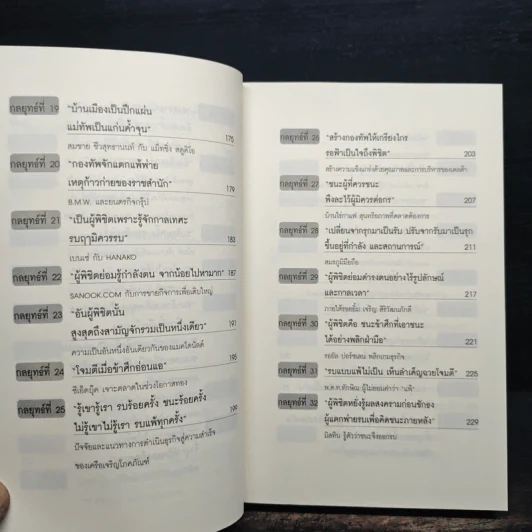 กลยุทธ์ที่ 19 "บ้านเมืองเป็นปึกแผ่น
แม่ทัพเป็นแก่นค้ำจุน" 175
สมชาย ชีวสุทธานนท์ กับ แม็ทชิ่ง สตูดิโอ
กลยุทธ์ที่ 20 "กองทัพจักแตกแพ้พ่าย
เหตุก้าวก่ายของราชสำนัก" 179
B.M.W. และยนตรกิจกรุ๊ป
กลยุทธ์ที่ 21 "เป็นผู้พิชิตเพราะรู้จักกาลเทศะ
รบฤามิควรรบ" 183
เบนเซ่ กับ HANAKO
กลยุทธ์ที่ 22 "ผู้พิชิตย่อมรู้กำลังตน จากน้อยไปหามาก" 187
SANOOK.COM กับการขายกิจการเพื่อเติบใหญ่
กลยุทธ์ที่ 23 "อันผู้พิชิตนั้น
สูงสุดถึงสามัญจักรวมเป็นหนึ่งเดียว" 191
ความเป็นอันหนึ่งอันเดียวกันของแมคโดนัลด์
กลยุทธ์ที่ 24 "โจมตีเมื่อข้าศึกอ่อนแอ" 195
ซีเอ็ดบุ๊ค เจาะตลาดในช่วงโอกาสทอง
กลยุทธ์ที่ 25 "รู้เขารู้เรา รบร้อยครั้ง ชนะร้อยครั้ง
ไม่รู้เขาไม่รู้เรา รบแพ้ทุกครั้ง" 199
ปัจจัยและแนวทางการดำเนินธุรกิจสู่ความสำเร็จ
ของเครือเจริญโภคภัณฑ์
กลยุทธ์ที่ 26 "สร้างกองทัพให้เกรียงไกร
รอฟ้าเป็นใจถึงพิชิต" 203
สร้างความแข็งแกร่งด้วยคุณภาพและการบริหารของ
กลยุทธ์ที่ 27 "ชนะผู้ที่ควรชนะ
พึงละไว้ผู้มิควรต่อกร" 207
บ้านไร่กาแฟ สุนทรียภาพที่ตลาดต้องการ
กลยุทธ์ที่ 28 "เปลี่ยนจากรุกมาเป็นรับ ปรับจากรับมาเป็นรุก
ขึ้นอยู่ที่กำลัง และสถานการณ์" 211
สมรภูมิมือถือ
กลยุทธ์ที่ 29 "ผู้พิชิตย่อมดำรงตนอย่างไร้รูปลักษณ์
และกาลเวลา" 217
ภายใต้รอยยิ้ม เจริญ สิริวัฒนภักดี
กลยุทธ์ที่ 30 "ผู้พิชิตคือ ชนะข้าศึกที่เอาชนะ
ได้อย่างพลิกฝ่ามือ" 221
รอยัล ปอร์ซเลน พลิกเกมธุรกิจ
กลยุทธ์ที่ 31 "รบแบบแพ้ไม่เป็น เห็นลำเค็ญฉวยโจมตี" 225
พ.ต.ท.ทักษิณ ผู้ไม่ยอมคำว่า "แพ้"
กลยุทธ์ที่ 32 "ผู้พิชิตหยั่งรู้ผลสงครามก่อนชักธง
ผู้แตกพ่ายรบเพื่อคิดชนะภายหลัง" 229
มิสทิน รู้ตัวว่าชนะจึงออกรบ